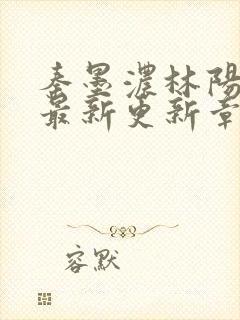 秦墨濃林陽
最新更新章
容默